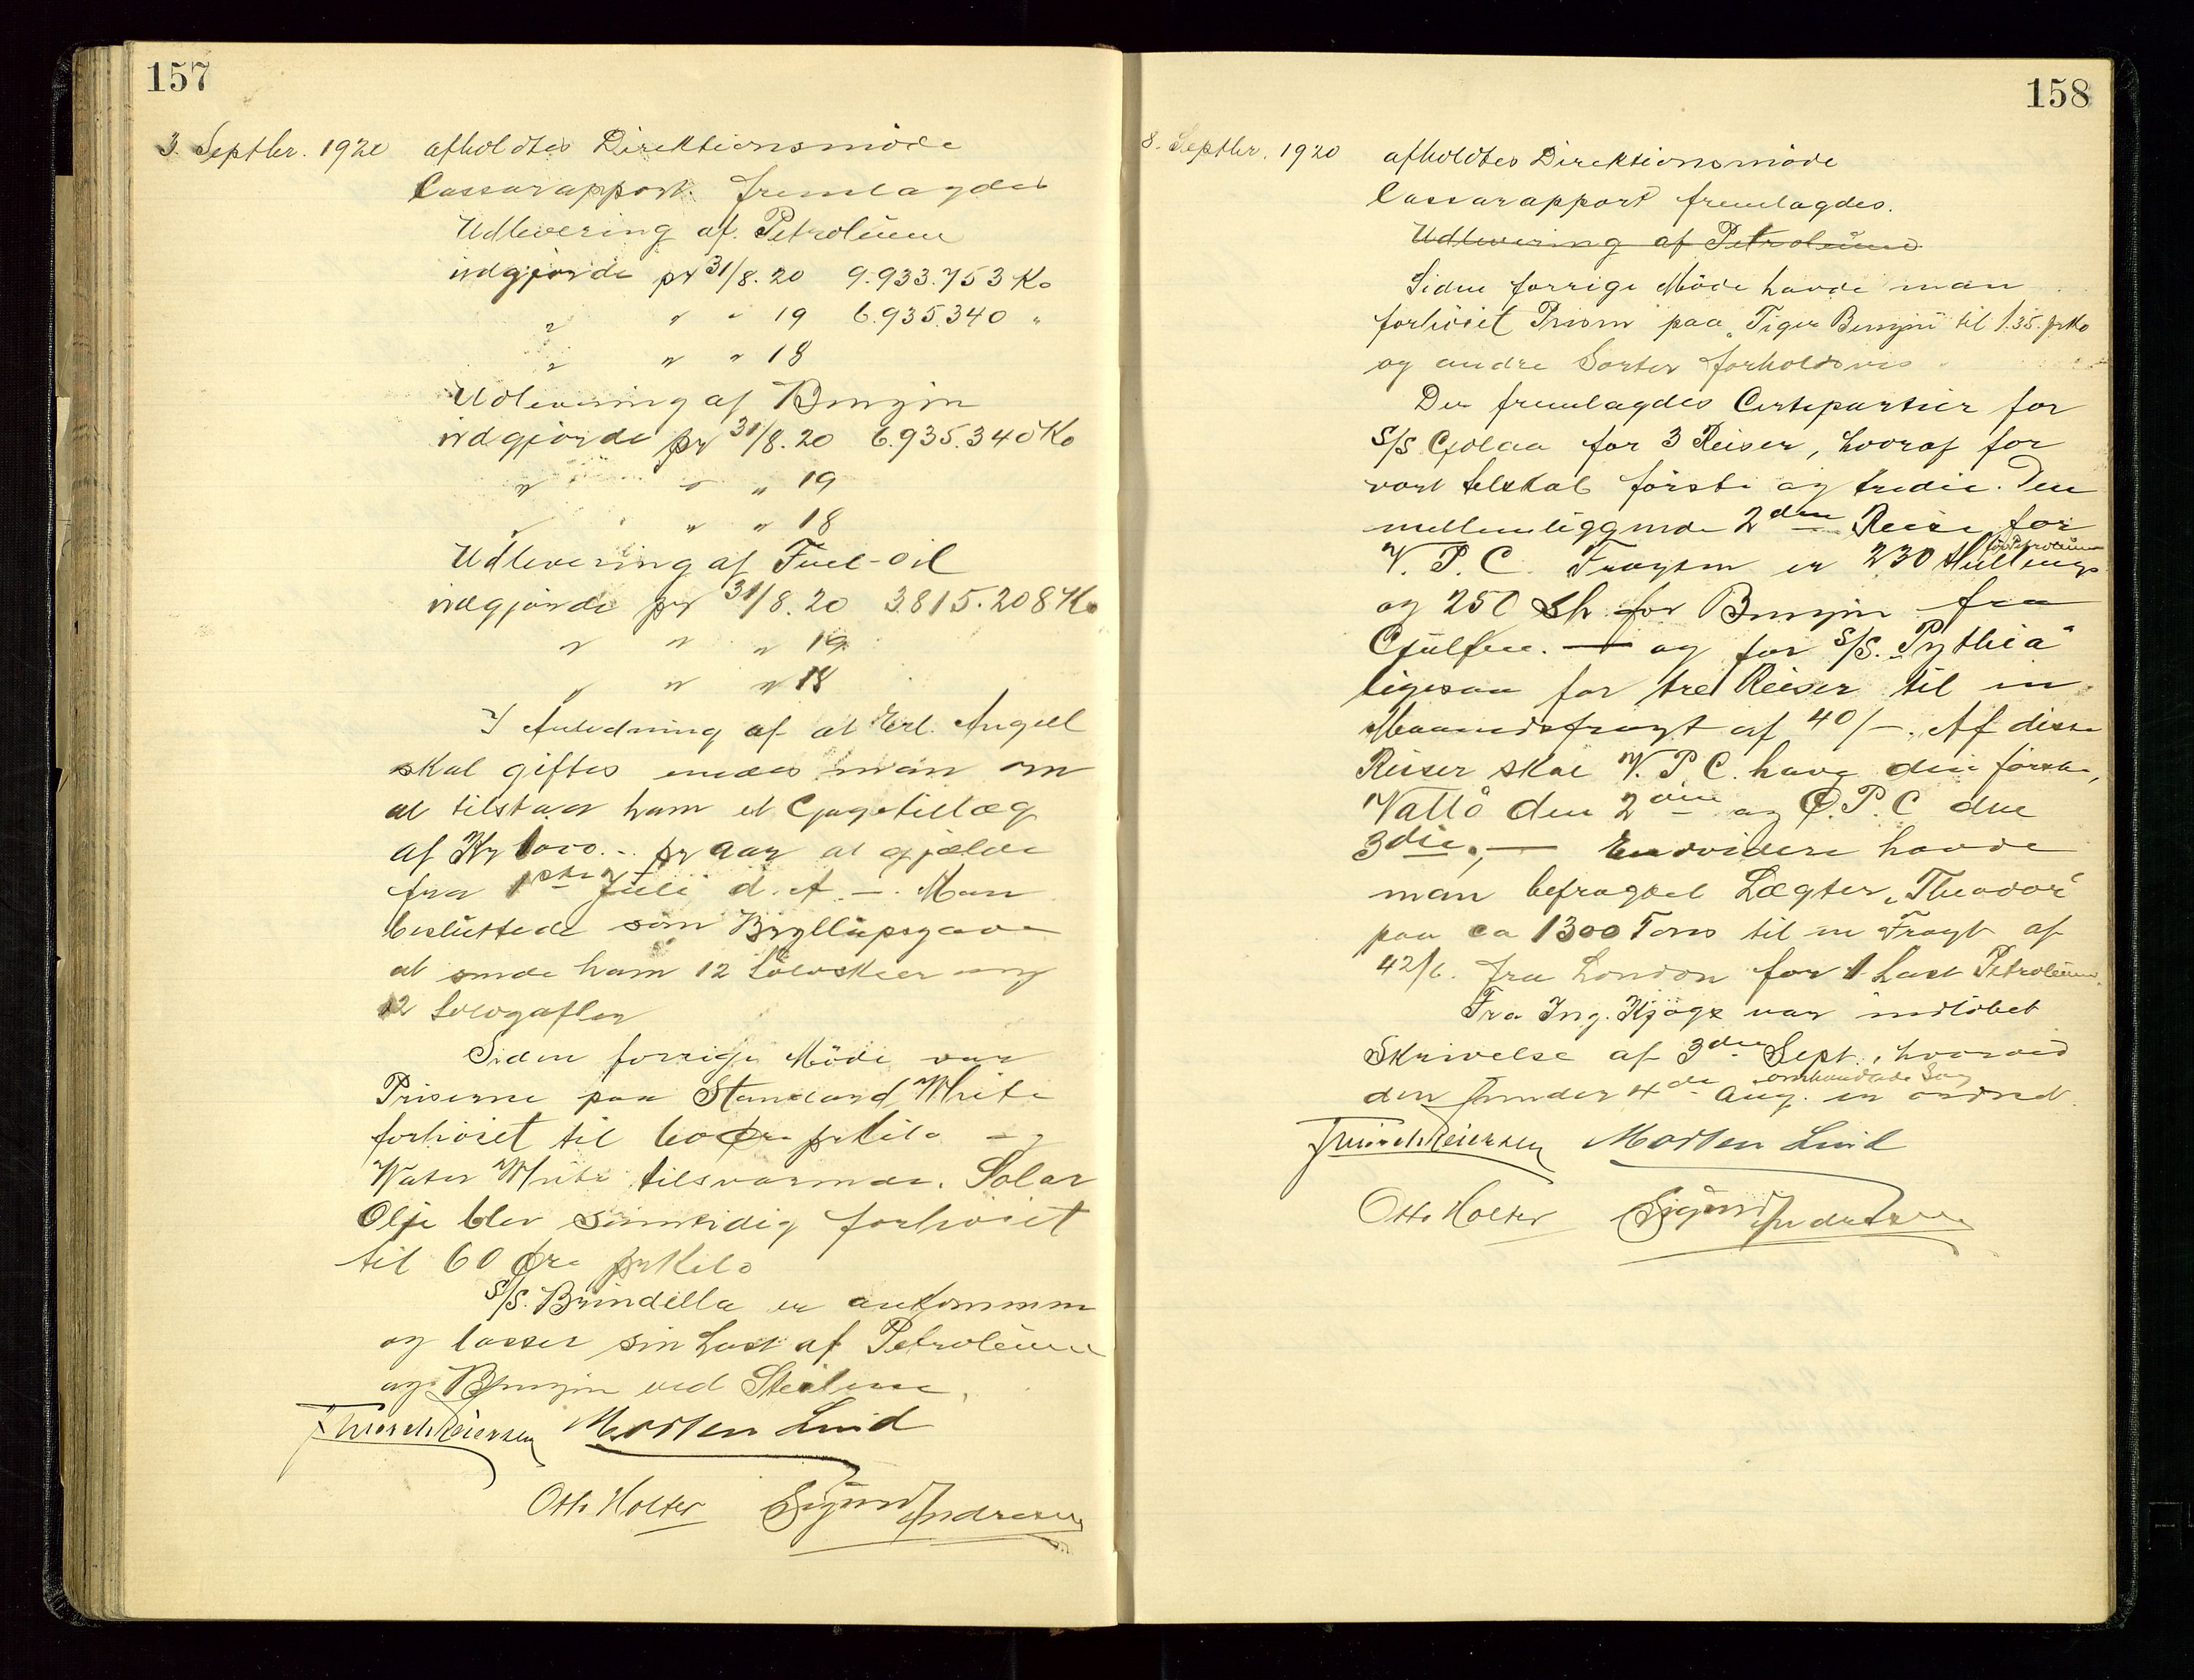 157
3. Septbr. 1920 afholdtes Direktionsmöde
Cassarapport fremlagdes
Udlevering af Petroleum
udgjorde pr 31/8. 20 9.933.753 Ko
" " " 19 6.935.340 "
" " " 18
Udlevering af Benzin
udgjorde pr 31/8. 20 6.935.340 Ko
" " " 19
" " " 18
Udlevering af Fuel-oil
udgjorde pr 31/8. 20 3.815.208 Ko
" " " 19
" " " 18
I Anledning af at Erl. Angell
skal giftes enedes man om
at tilstaa ham et Gagetillæg
af Kr 1000.- pr Aar at gjælde
fra 1ste Juli d. A. -. Man
besluttede som Bryllupsgave
at sende ham 12 Sölvskeer og
12 Sölvgafler
Siden forrige Möde var
Priserne paa Standard White
forhöiet til 60 Øre pr Kilo og
Water White tilsvarende. Solar
Olje blev samtidig forhöiet
til 60 Øre pr Kilo
S/S. Brindilla er ankommen
og losser sin Last af Petroleum
og Benzin ved Steilene.
Morten Lind
Otto Holter Sigurd Andresen
158
8. Septbr. 1920 afholdtes Direktionsmöde
Cassarapport fremlagdes.
Udlevering af Petroleum
Siden forrige Möde havde man
forhöiet Prisen paa "Tiger Benzin" til 1.35. pr Ko
og andre Sorter forholdsvis.
Der fremlagdes Certepartier for
S/S. Gjolaa for 3 Reiser, hvoraf for
vort Selskab förste og tredie. Den
mellemliggende 2den Reise for
V. P. C. Fragten er 230 Shillings for Petroleum
og 250 Sh. for Benzin fra
Gulfen. — og for S/S. "Pythia"
ligesaa for tre Reiser til en
Maanedsfragt af 40/-. Af disse
Reiser skal V. P. C. have den förste,
Vallö den 2den og Ø. P. C den
3die. — Endvidere havde
man befragtet Lægter "Theodor"
paa ca 1300 Tons til en Fragt af
42/6. fra London for 1 Last Petroleum.
Fra Ing. Kjøge var indlöbet
Skrivelse af 3die Sept., hvorved
den under 4de Aug. omhandlede Sag er ordnet.
Morten Lind
Otto Holter Sigurd Andresen